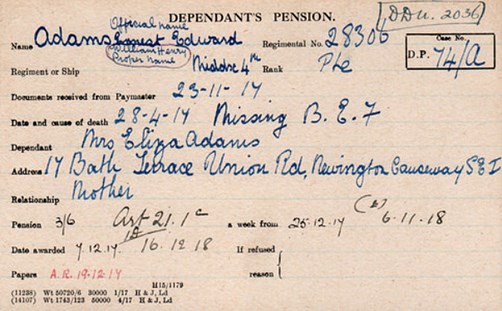 DEPENDANT'S PENSION.
DDU. 2036
Official name
Name Adams Ernest Edward
(William Henry
Proper name)
Regimental No. 28306
Case No.
D.P. 74/A
Regiment or Ship Middx 4th Rank Pte
Documents received from Paymaster 23-11-17
Date and cause of death 28-4-17 Missing B.E.F
Dependant Mrs Eliza Adams
Address 17 Bath Terrace Union Rd, Newington Causeway S E 1
Relationship Mother
Pension 3/6 Art 21.1c a week from 25.12.17 (b) 6-11-18
Date awarded 7.12.17 16.12.18 If refused
reason
Papers A.R. 19-12-17
H15/1179
(11238) Wt 50720/6 30000 1/17 H & J, Ld
(14107) Wt 1743/123 50000 4/17 H & J, Ld